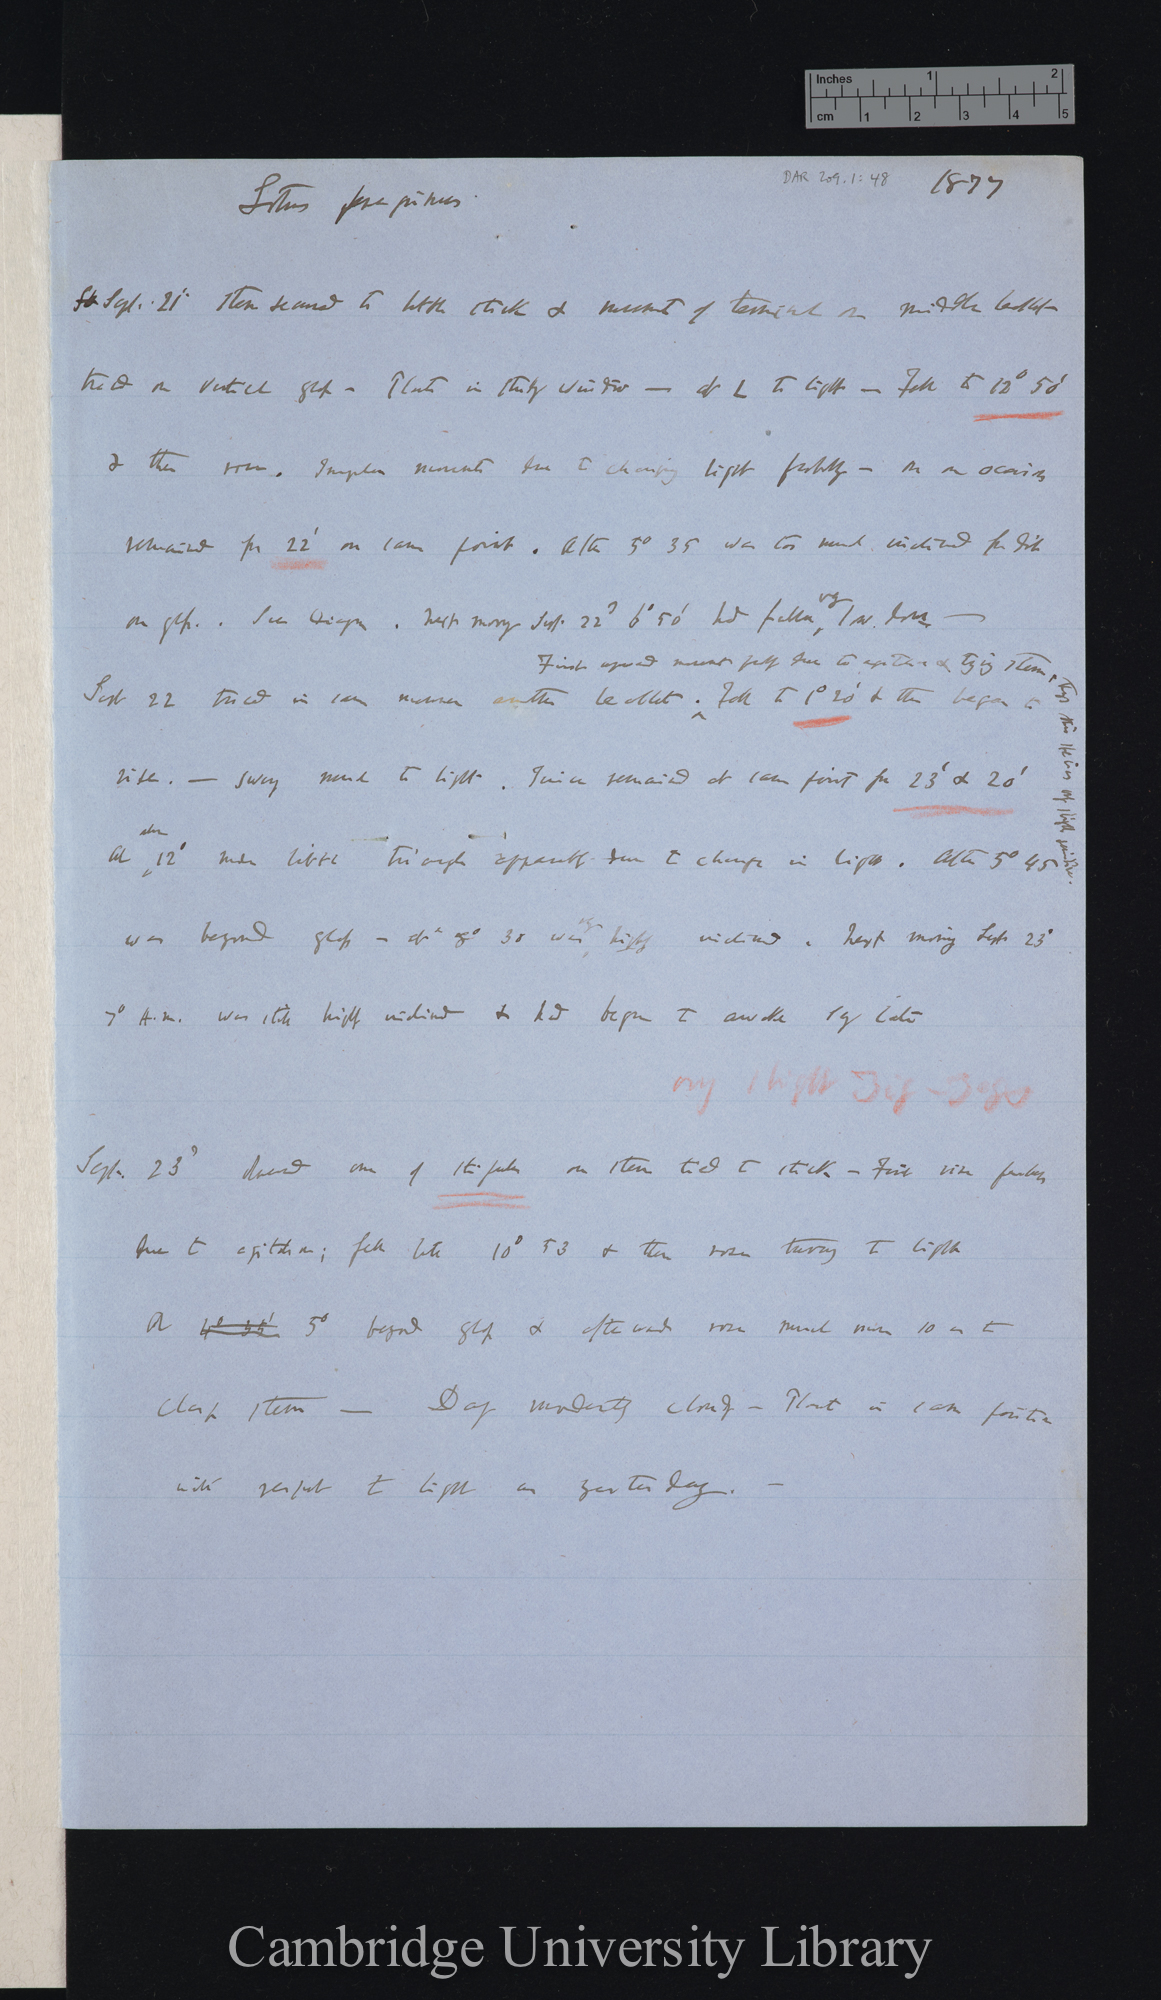 Inches 1 2
cm 1 2 3 4 5
DAR 209.1:48 1877
Lotus
Sept. 21 Stem secured to little stick & movement of terminal or middle leaflet
traced on vertical glass — Plant in study window — at L to light — Fell to 12° 50'
& then rose. Irregular movements due to changing light probably — on one occasion
remained for 22' on same point. After 5° 35 was too much inclined for dots
on glass. See Diagram. Next morning Sept. 22° 6° 50' had fallen very low down —
First upward movement due to agitation & tying stem,
Sept 22 traced in same manner another leaflet. Fell to 1° 20' & then began to
rise. — sway much to light. Twice remained at same point for 23' & 20'
At 12° made little triangle apparently due to change in light. After 5° 45
was beyond glass — at 30 was very highly inclined. Next morning Sept 23°
7° A.m. was still highly inclined & had begun to awake
only slight Zig-Zags
Sept. 23° observed one of stipules on stem tied to stick — First rise perhaps
due to agitation; fell till 10° 53 & then rose to light
At 5° beyond glass & afterwards rose much more so as to
clasp stem — Day moderately cloudy — Plant in same position
with respect to light as yesterday. —
Cambridge University Library